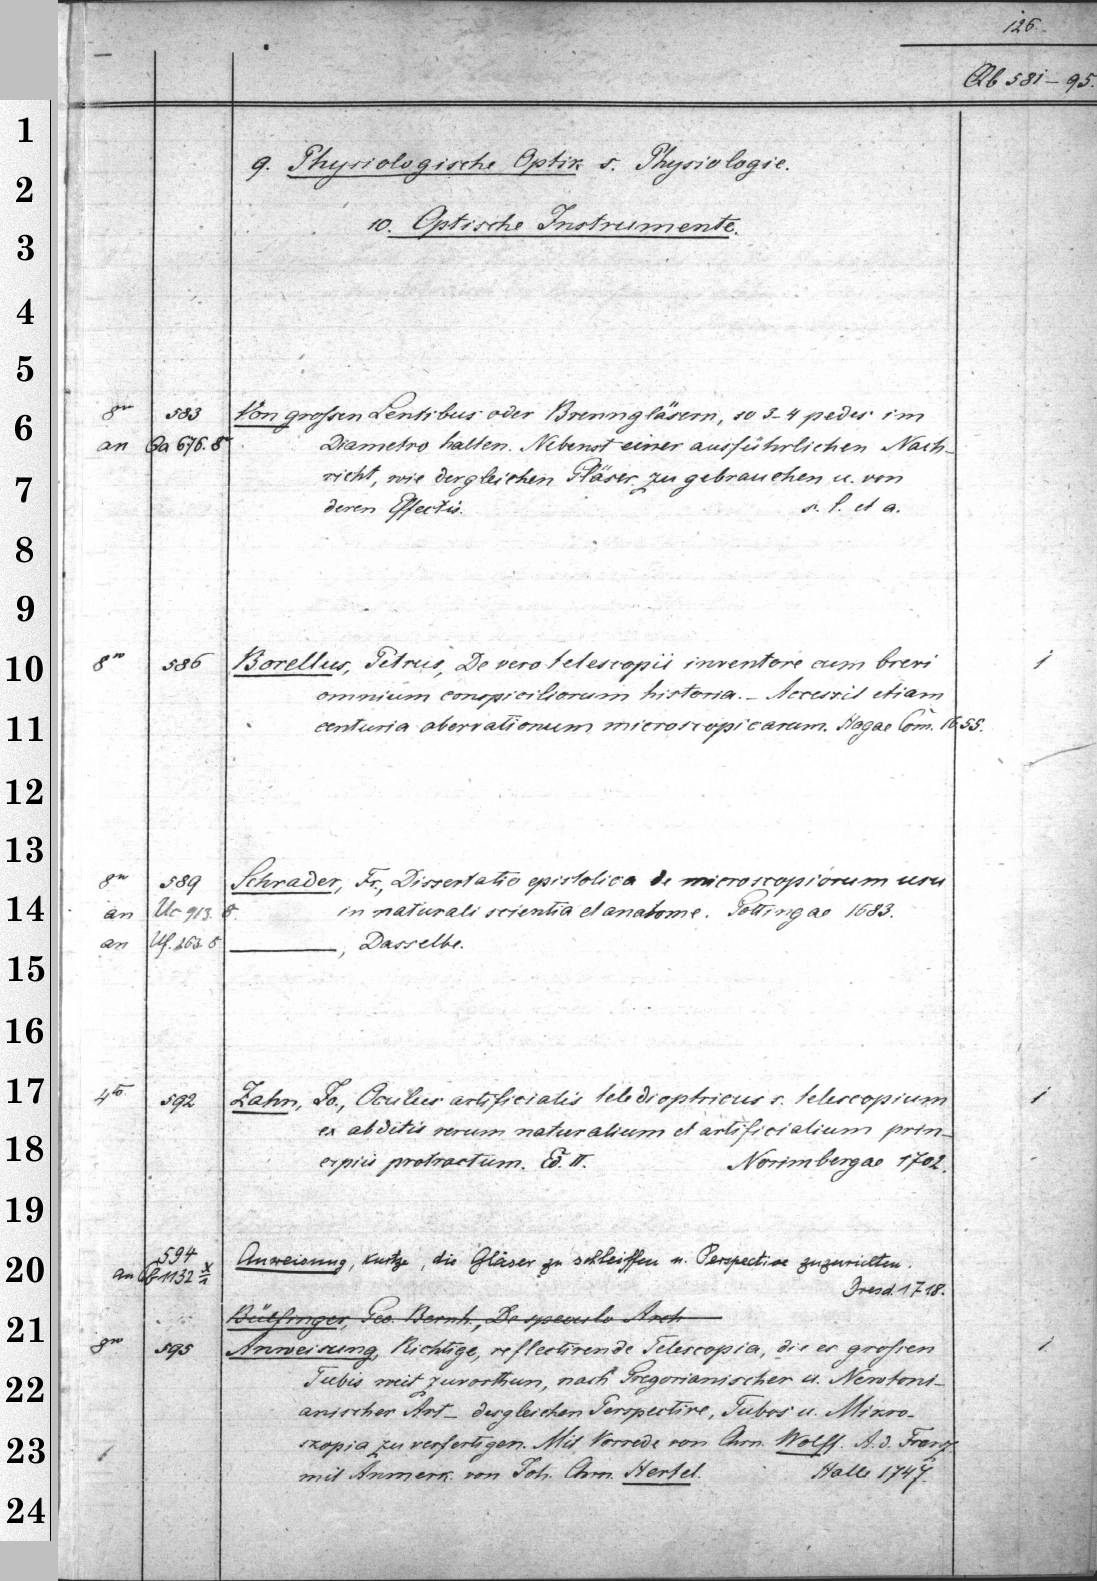 126.
Qb 581-95.
9. Physiologische Optik s. Physiologie.
10. Optische Instrumente.
8vo 583 Von großen Lentibus oder Brenngläsern, so 3-4 pedes im
an Pa 676. 8o Diametro halten. Nebenst einer ausführlichen Nach-
richt, wie dergleichen Gläser zu gebrauchen u. von
deren Effectis. s. l. et a.
8vo 586 Borellus, Petrus, De vero telescopii inventore cum brevi 1
omnium conspiciliorum historia. - Accessit etiam
centuria observationum microscopicarum. Hagae Com. 1655.
8vo 589 Schrader, Fr., Dissertatio epistolica de microscopiorum usu
an Uc 913. 8. in naturali scientia et anatome. Gottingae 1683.
an Uf. 263. 8 ———, Dasselbe.
4to 592 Zahn, Jo., Oculus artificialis teledioptricus s. telescopium 1
ex abditis rerum naturalium et artificialium prin-
cipiis protractum. Ed. II. Norimbergae 1702.
594 Anweisung, kurtze, die Gläser zu schleiffen u. Perspective zuzurichten.
an 1132 Dresd. 1718.
Bülfinger, Geo. Bernh., De speculo Arch
8vo 595 Anweisung, Richtige, reflectirende Telescopia, die es großen 1
Tubis weit zuvorthun, nach Gregorianischer u. Newtoni-
anischer Art - desgleichen Perspective, Tubos u. Mikro-
skopia zu verfertigen. Mit Vorrede von Chrn. Wolff. A. d. Franz.
mit Anmerk. von Joh. Chrn. Hertel. Halle 1747.
1
2
3
4
5
6
7
8
9
10
11
12
13
14
15
16
17
18
19
20
21
22
23
24